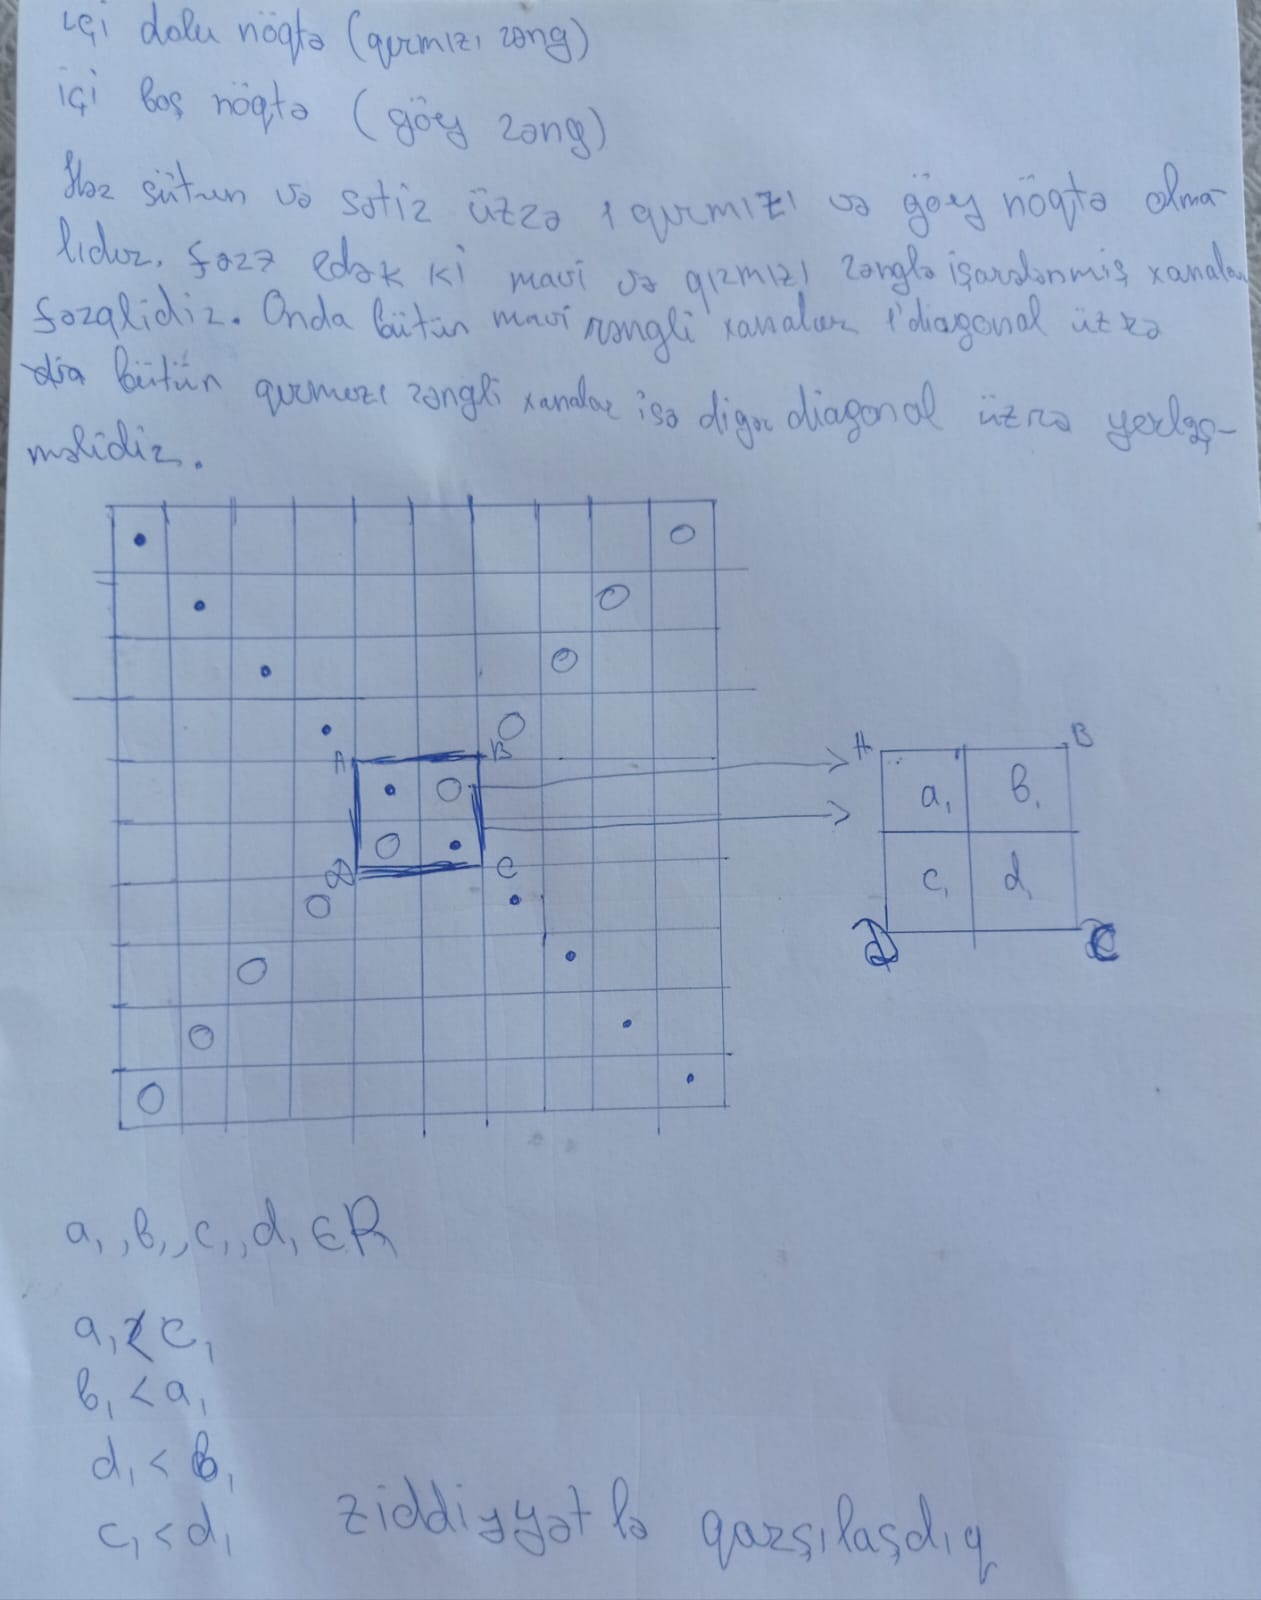 içi dolu nöqtə (qırmızı rəng)
içi boş nöqtə (göy rəng)
Hər sütun və sətir üzrə 1 qırmızı və göy nöqtə olma-
lıdır. Fərz edək ki mavi və qırmızı rənglə işarələnmiş xanalar
fərqlidir. Onda bütün mavi rəngli xanalar 1 diaqonal üzrə
bütün qırmızı rəngli xanalar isə digər diaqonal üzrə yerləş-
məlidir.
A B
D C
A B
a₁ b₁
c₁ d₁
D C
a₁, b₁, c₁, d₁ ∈ R
a₁ < c₁
b₁ < a₁
d₁ < b₁
c₁ < d₁ ziddiyyətlə qarşılaşdıq